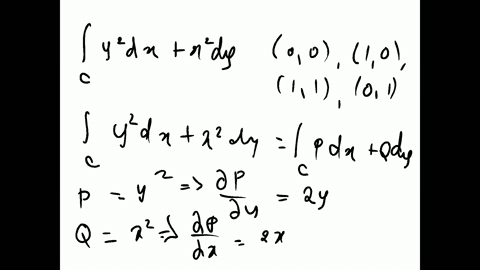 ∫_C y²dx + x²dy (0,0), (1,0),
(1,1), (0,1)
∫_C y²dx + x²dy = ∫_C Pdx + Qdy
P = y² => ∂P/∂y = 2y
Q = x² => ∂Q/dx = 2x